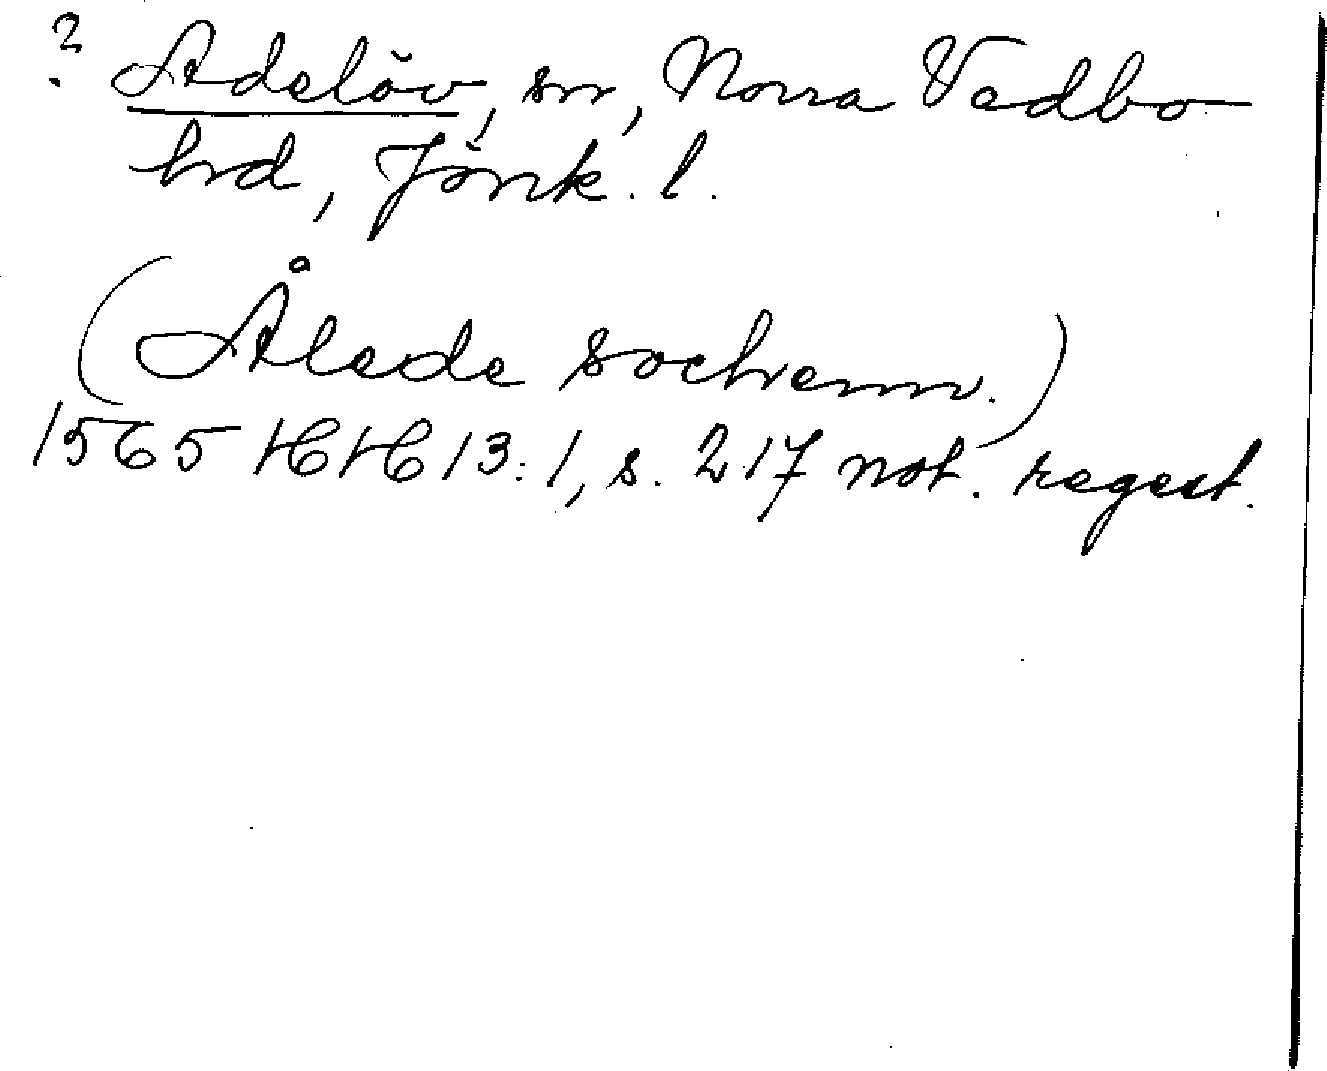 ? Adelöv, sn, Norra Vedbo
hd, Jönk. l.
(Ålede sochenn.)
1565 HH 13:1, s. 217 not. regest.